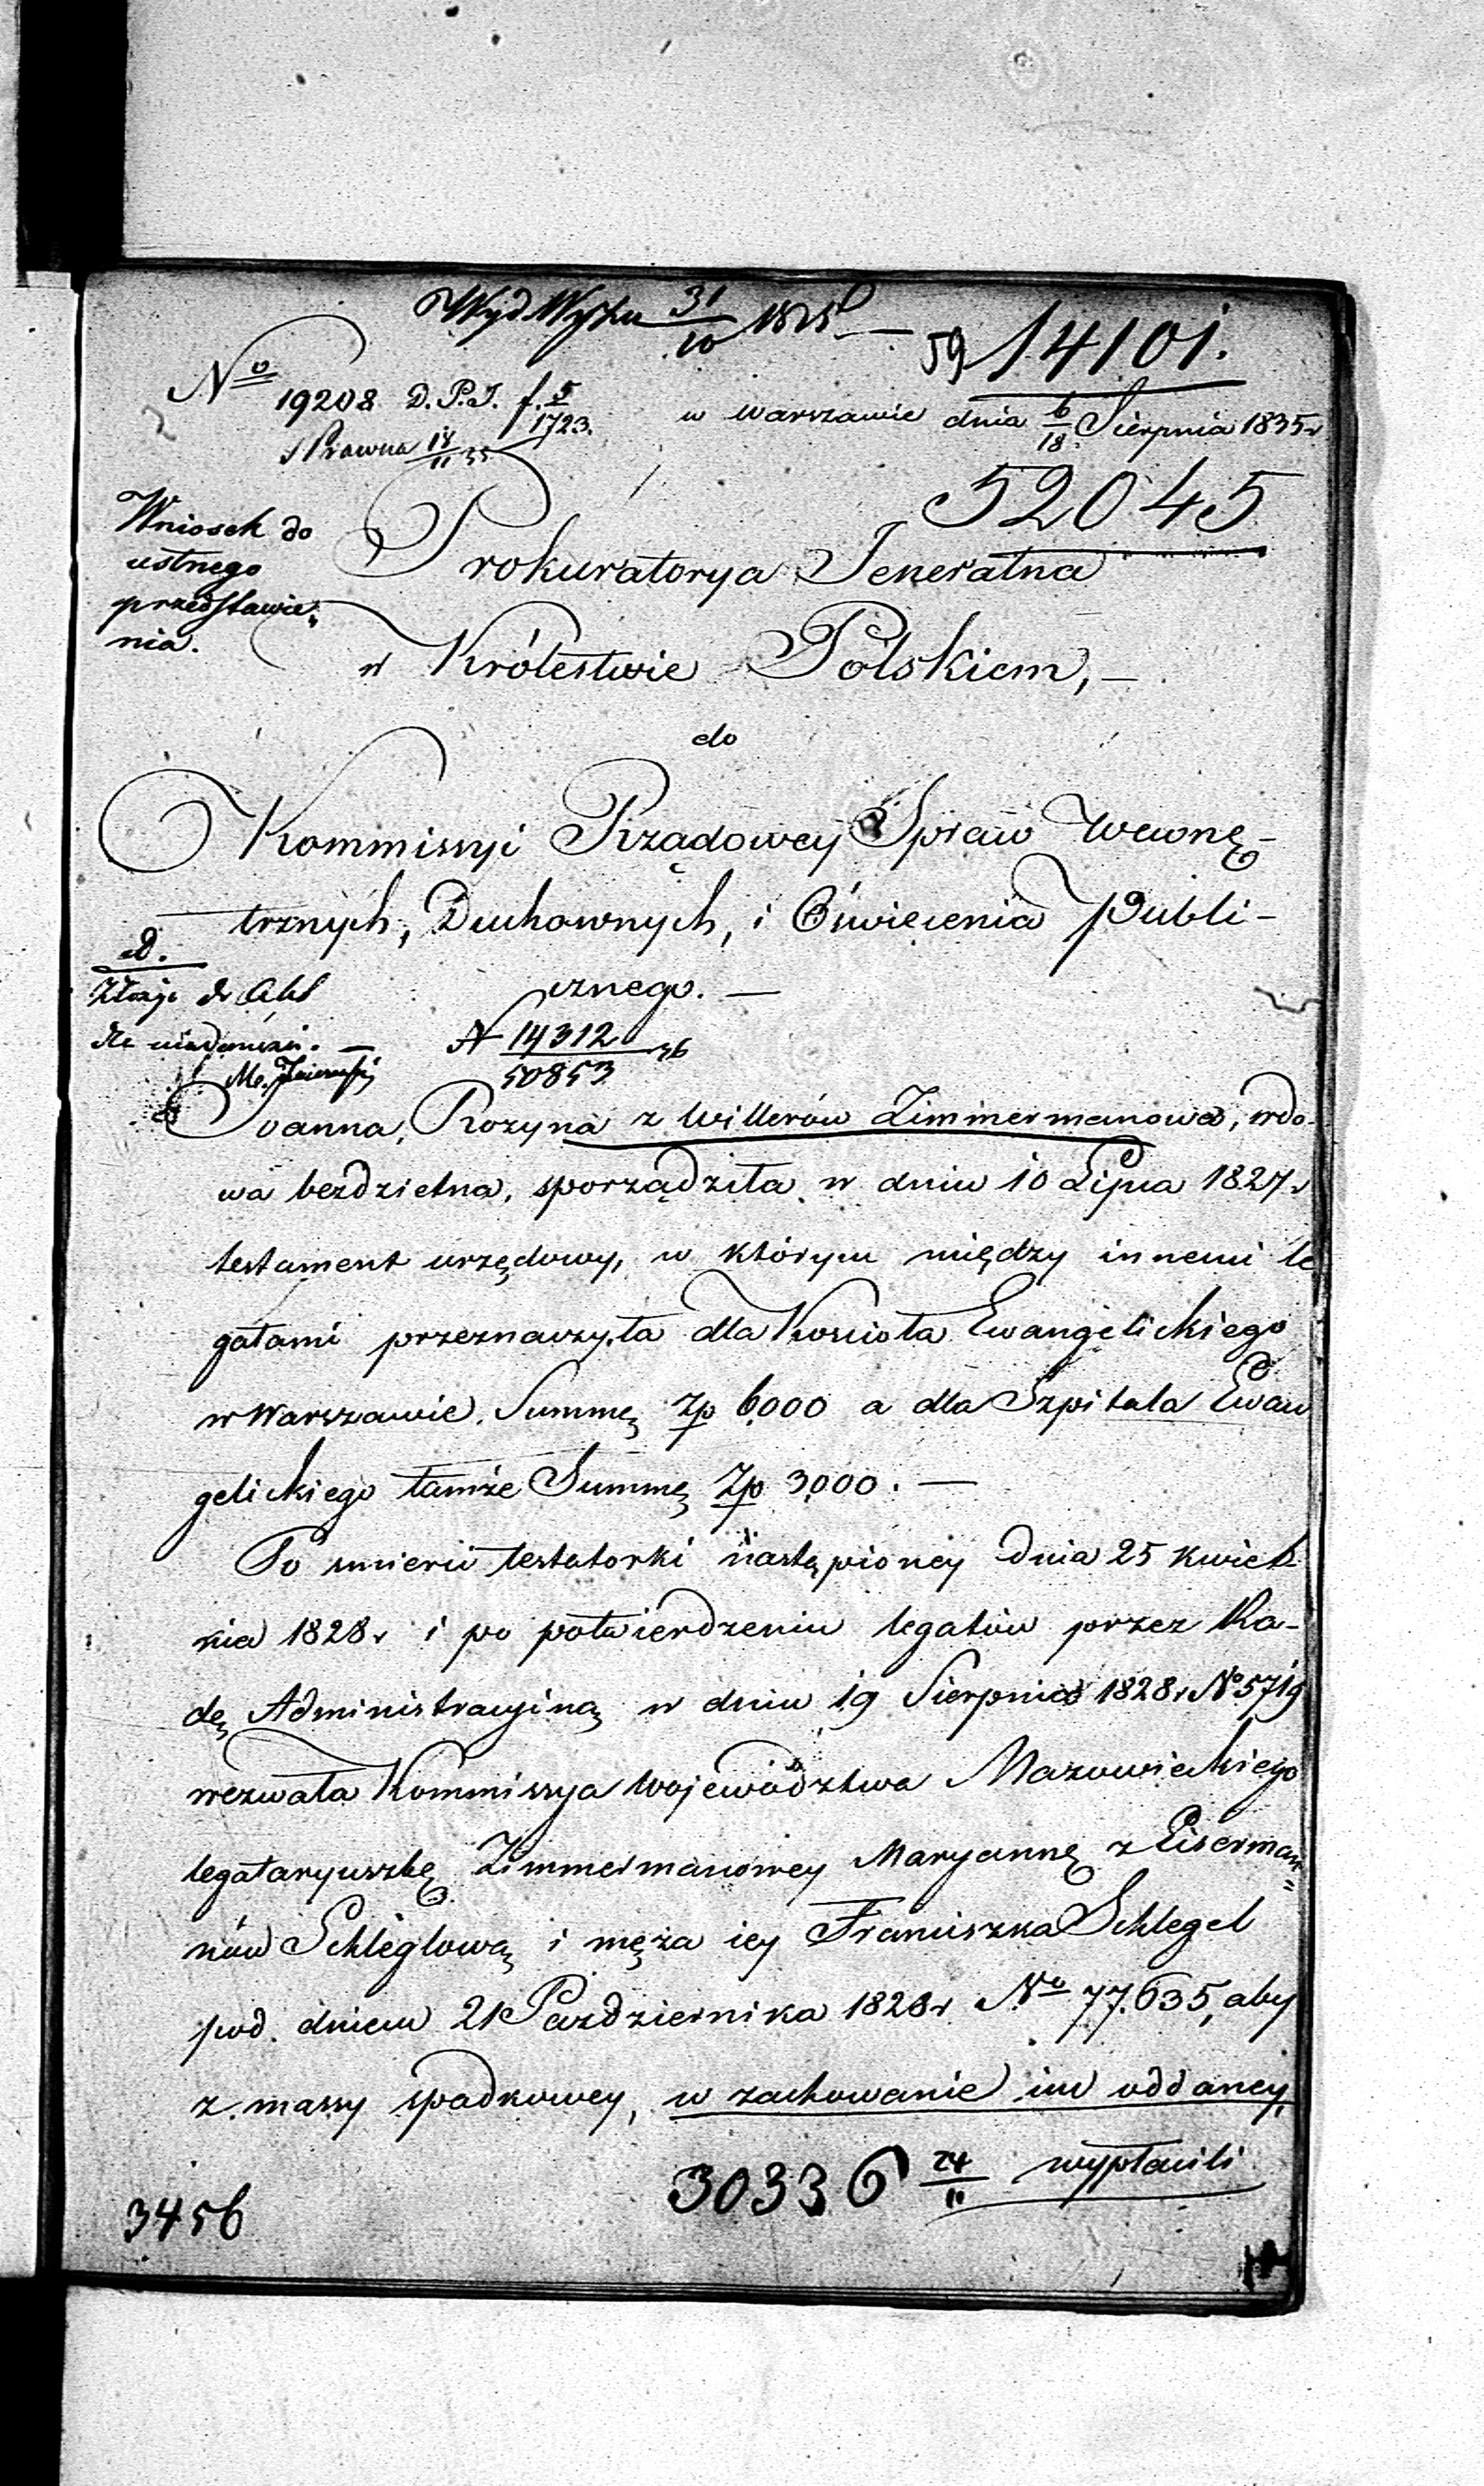 Wyd Wyszu 31/10 1835
59 14101.
No 19208 D.P.J. f. 5/1723.
w Warszawie dnia 6/18 Sierpnia 1835 r
Prawna 18/11 35
52045
Wniosek do
ustnego
przedstawie-
nia.
Prokuratorya Jeneralna
w Królestwie Polskiem, —
do
Kommissyi Rządowey Spraw Wewnę-
trznych, Duchownych, i Oświecenia Publi-
cznego. —
ad.
do Akt
dla wiadomości. —
N 14312/50853 36
Joanna, Rozyna z Willerów Zimmermanowa, wdo-
wa bezdzietna, sporządziła w dniu 10 Lipca 1827 r
testament urzędowy, w którym między innemi le
gatami przeznaczyła dla Kościoła Ewangelickiego
w Warszawie Summę Zp 6000 a dla Szpitala Ewan
gelickiego tamże Summę Zp 3000. —
Po śmierci testatorki nastąpioney dnia 25 Kwiet-
nia 1828 r i po potwierdzeniu legatów przez Ra-
dę Administracyiną w dniu 19 Sierpnia 1828 r No 5719
wezwała Kommissya Województwa Mazowieckiego
legataryuszkę Zimmermanowey Maryannę z Eiserman=
nów Schleglową i męża iey Franciszka Schlegel
pod dniem 21 Października 1828 r No 77.635, aby
z massy spadkowey, w zachowanie im oddaney,
wypłacili
30336 24/11
3456